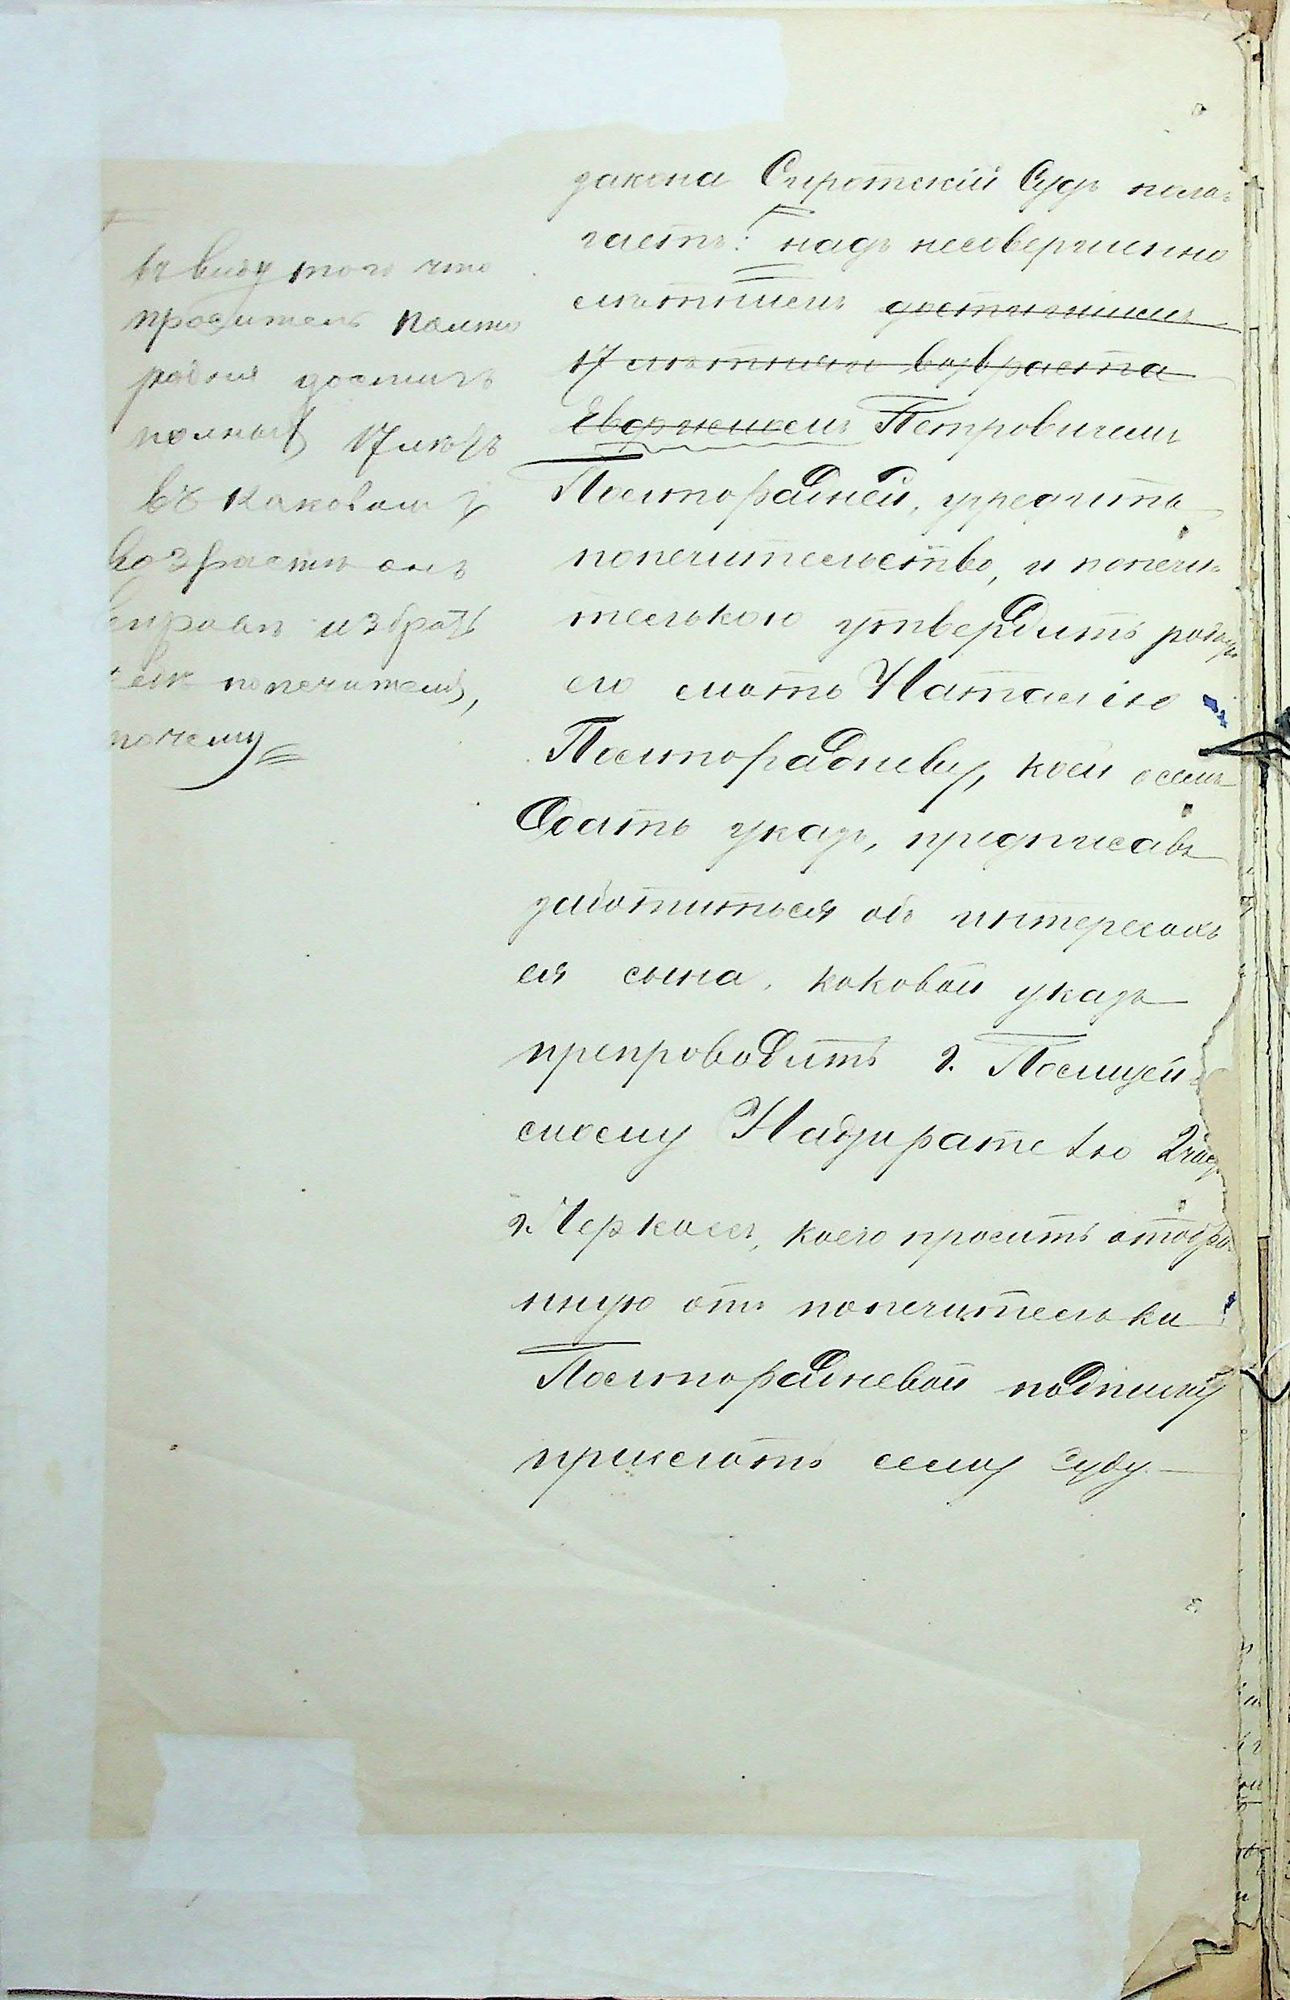 въ виду того что
проситель Полто
радня достигъ
полныхъ 17 лѣтъ
въ каковомъ
возрастѣ онъ
вправѣ избрать
себѣ попечителя,
почему
закона Сиротскій Судъ пола-
гаетъ: надъ несовершенно
лѣтнимъ достигшимъ
17 лѣтняго возраста
Евдокимомъ Петровичемъ
Полторадней, учредить
попечительство, и попечи-
тельницею утвердить родную
его мать Наталію
Полторадневу, коей о семъ
дать указъ, предписавъ
заботиться объ интересахъ
ея сына, каковой указъ
препроводить г. Полицей-
скому Надзирателю 2 части
г. Черкассъ, коего просить отобран-
ную отъ попечительницы
Полторадневой подписку
прислать сему Суду.